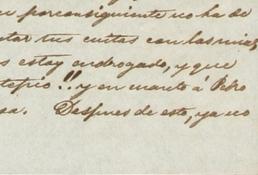 porconsiguiente no ha de
tar tus cuitas con las mias,
estoy endrogado, y que
tepio!! y en cuanto á Pedro
sa. Despues de esto, ya no